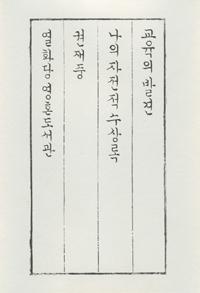 교육의 발견
나의 자전적 수상록
권재중
열화당 영혼도서관